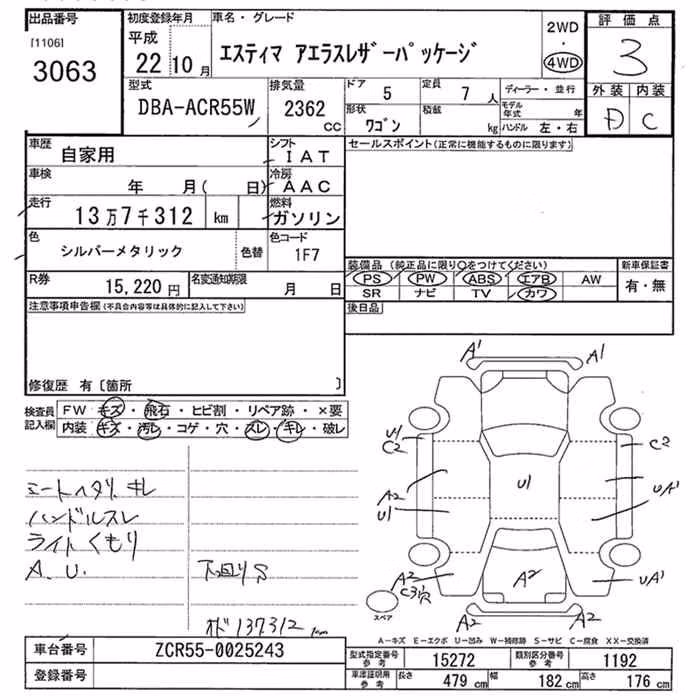 出品番号
[1106]
3063
初度登録年月
平成
22年10月
車名・グレード
エスティマ アエラスレザーパッケージ
2WD
・
4WD
評価点
3
外装 内装
D C
型式
DBA-ACR55W
排気量
2362
CC
ドア
5
定員
7人
ディーラー・並行
形状
ワゴン
積載
kg
モデル年式 年
ハンドル 左・右
車歴
自家用
シフト
IAT
車検
年 月( 日)
冷房
AAC
走行
13万7千312 km
燃料
ガソリン
色
シルバーメタリック
色替
色コード
1F7
R券
15,220円
名変通知期限
月 日
セールスポイント(正常に機能するものに限ります)
装備品 (純正品に限り○をつけてください)
新車保証書
PS PW ABS エアB AW
有・無
SR ナビ TV カワ
後日品
注意事項申告欄(不具合内容等は具体的に記入して下さい)
修復歴 有〔箇所 〕
検査員記入欄
FW キズ・飛石・ヒビ割・リペア跡・×要
内装 キズ・汚レ・コゲ・穴・スレ・キレ・破レ
シートヘタリ、キレ
ハンドルスレ
ライトくもり
A.U.
下回りS
オド137312km
A1 A1
U1
C2
C2
A2
U1
U1
UA1
A2
C3穴
A2
UA1
A2 A2
スペア
A―キズ E―エクボ U―凹み W―補修跡 S―サビ C―腐食 XX―交換済
車台番号
ZCR55-0025243
登録番号
型式指定番号 参考
15272
類別区分番号 参考
1192
車庫証明用 参考
長さ 479 cm
幅 182 cm
高さ 176 cm